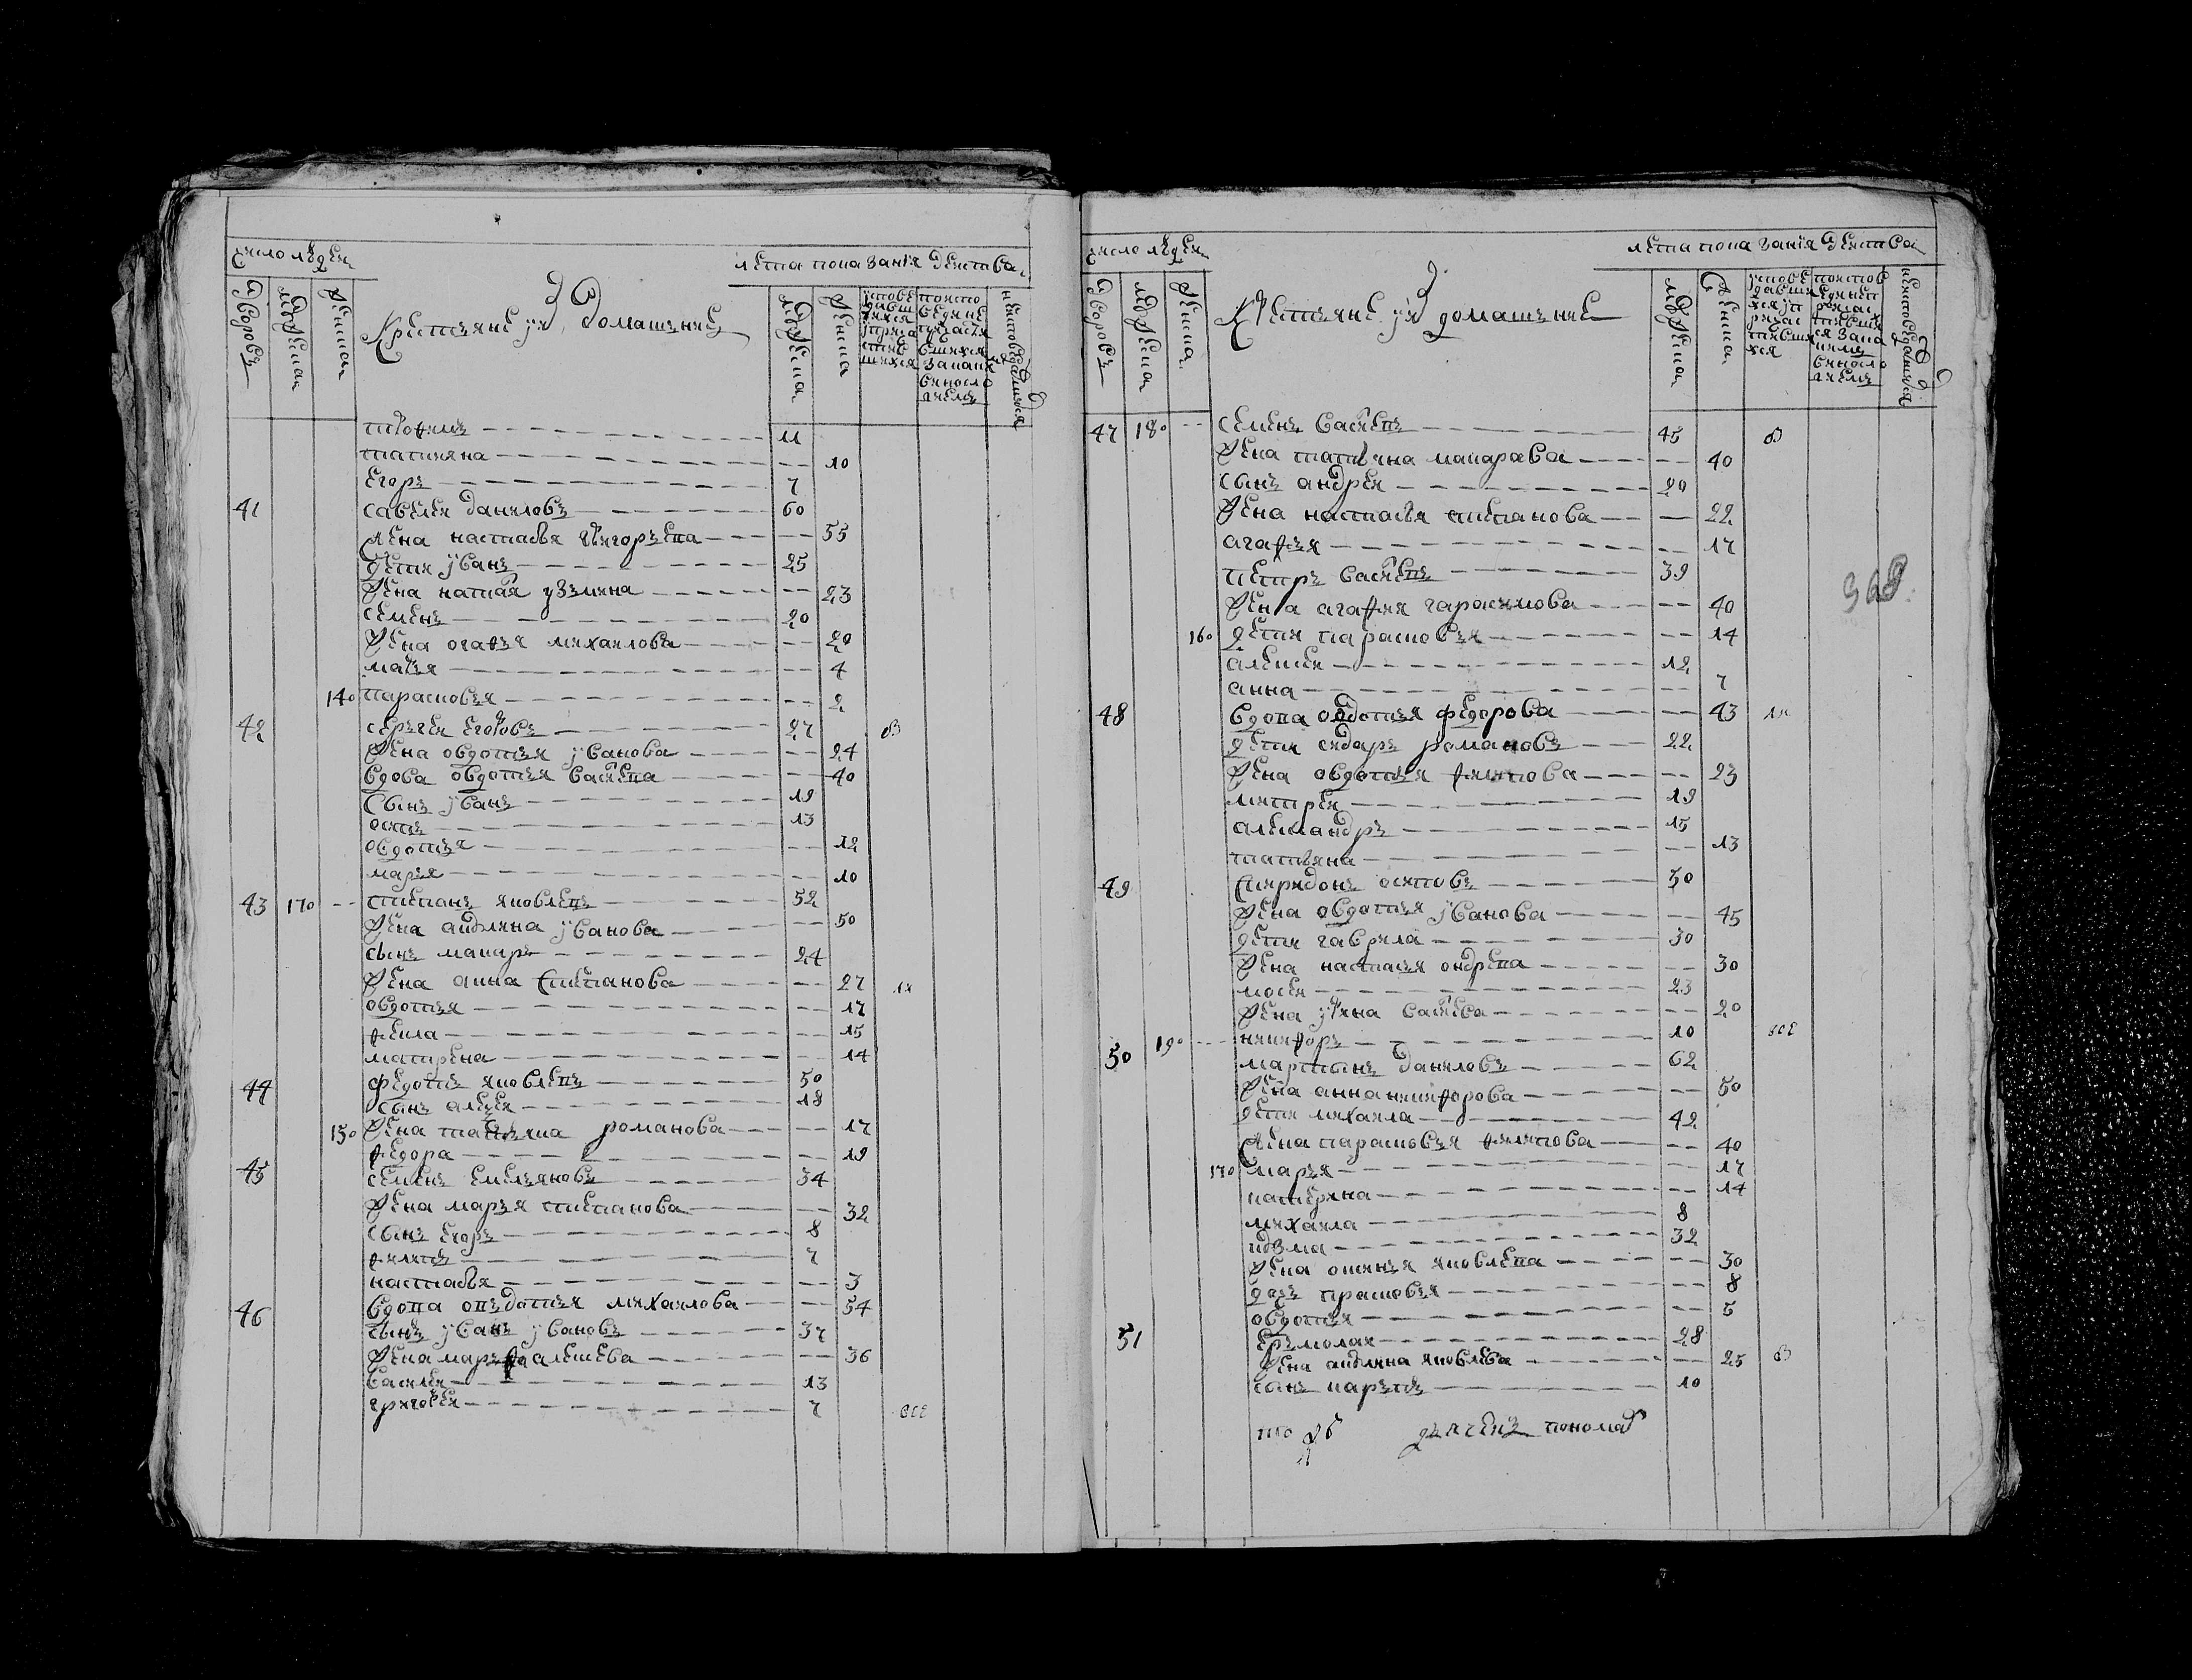 число людеи
лета показания деиства
дворовъ
мужеска
женска
Крестьяне их домашние
мужеска
женска
трофимъ 11
татияна 10
егоръ 7
41 савелеи даниловъ 60
жена настасья григорьева 55
дети иванъ 25
жена наталья кузмина 23
семенъ 20
жена огафья михаилова 20
марья 4
140 парасковья 2
42 сергеи егоровъ 27
жена овдотья иванова 24
вдова овдотья васильева 40
сынъ иванъ 19
осипъ 13
овдотья 12
марья 10
43 170 степанъ яковлевъ 52
жена акулина иванова 50
сынъ макаръ 24
жена анна степанова 27
овдотья 17
фекла 15
матрена 14
44 федотъ яковлевъ 50
сынъ алексеи 18
150 жена татьяна романова 17
федора 19
45 семенъ емельяновъ 34
жена марья степанова 32
сынъ егоръ 8
филипъ 7
настасья 3
46 вдова овдотья михаилова 54
сынъ иванъ ивановъ 37
жена марфа алексеева 36
василеи 13
григореи 7
все
число людеи
лета показания деиства
дворовъ
мужеска
женска
Крестьяне их домашние
мужеска
женска
47 180 семенъ васильевъ 45
жена татьяна макарова 40
сынъ андреи 20
жена настасья степанова 22
агафья 17
петръ васильевъ 39
жена агафия гарасимова 40
160 дети парасковья 14
алексеи 12
анна 7
48 вдова овдотья федорова 43
дети сидаръ романовъ 22
жена овдотья филипова 23
митреи 19
александръ 15
татьяна 13
49 спиридонъ осиповъ 50
жена овдотья иванова 45
дети гаврила 30
жена настасья ондреева 30
мосеи 23
жена ирина васильева 20
190 никифоръ 10 все
50 мартынъ даниловъ 62
жена анна никифорова 50
дети михаила 42
жена парасковья филипова 40
170 марья 17
катерина 14
михаила 8
кузма 32
жена оксинья яковлева 30
дочь прасковья 8
овдотья 5
51 ермолаи 28
жена акулина яковлева 25
сынъ карпъ 10
368